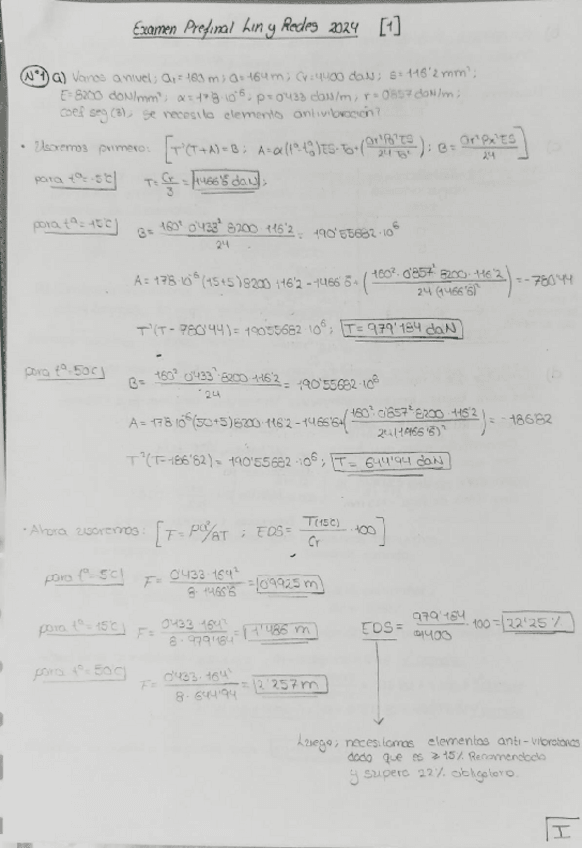 Examen Prefinal Lin y Redes 2024 [1]
Nº1 a) Vanos a nivel; ar = 160 m; a = 164 m; Cr = 4400 daN; s = 116'2 mm²;
E = 8200 daN/mm²; α = 17'8·10⁻⁶; p = 0'433 daN/m, r = 0'857 daN/m;
coef seg (3), se necesita elemento antivibración?
• Usaremos primero: [T²(T+A) = B;
para tª = -5ºC T = Cr/3 = 1466'6 daN;
para tª = 15ºC B = 160² 0'433² 8200·116'2 / 24 = 190'55682·10⁶
A = 17'8·10⁻⁶ (15+5) 8200·116'2 - 1466'6 + (160²·0'857² 8200·116'2 / 24 (1466'6)²) = -780'44
T²(T - 780'44) = 190'55682·10⁶; T = 979'184 daN
para tª = 50ºC B = 160² 0'433² 8200·116'2 / 24 = 190'55682·10⁶
A = 17'8·10⁻⁶ (50+5) 8200·116'2 - 1466'6 + (160²·0'857² 8200·116'2 / 24 (1466'6)²) = -186'82
T²(T - 186'82) = 190'55682·10⁶; T = 644'94 daN
• Ahora usaremos: [T = pa²/8T; EDS = T(15ºC)/Cr · 100]
para tª = -5ºC F = 0'433·164² / 8·1466'6 = 0'9925 m
para tª = 15ºC F = 0'433·164² / 8·979'184 = 1'486 m EDS = 979'184 / 4400 · 100 = 22'25 %
para tª = 50ºC F = 0'433·164² / 8·644'94 = 2'257 m
Luego; necesitamos elementos anti-vibratorios
dado que es ≥ 15% Recomendado
y supera 22% obligatorio.
I